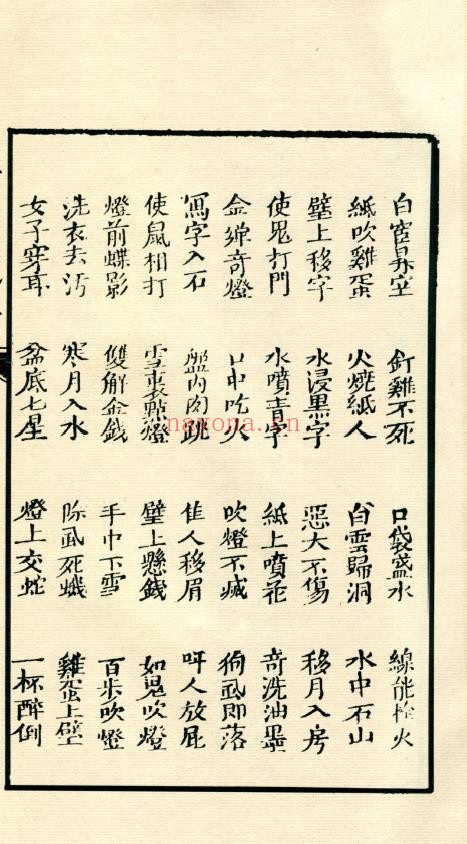 白宦昇空 釘雞不死 口袋盛水 線能栓火
紙吹雞蛋 火燒紙人 白雲歸洞 水中石山
壁上移字 水浸黑字 惡犬不傷 移月入房
使鬼打門 水噴青字 紙上噴花 奇洗油墨
金蟬奇燈 口中吃火 吹燈不滅 狗虱即落
寫字入石 盤內肉跳 佳人移眉 呼人放屁
使鼠相打 雪裏點燈 壁上懸錢 如鬼吹燈
燈前蝶影 雙解金錢 手巾下雪 百步吹燈
洗衣去污 寒月入水 除虱死蟣 雞蛋上壁
女子穿耳 盆底七星 燈上交蛇 一杯醉倒
naxona.cn